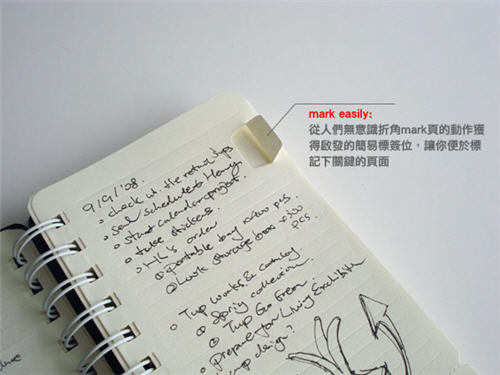 mark easily:
從人們無意識折角mark頁的動作獲
得啟發的簡易標簽位，讓你便於標
記下關鍵的頁面
9/9/'08.
check w. the return
send schedule to
start calendar project.
tube stickers.
HK's order
portable bag x200 pcs.
Look storage box x500
pcs.
Tup works & catalog
Spring collection.
Tup Go Green.
Prepare for Living Exhibition
design?